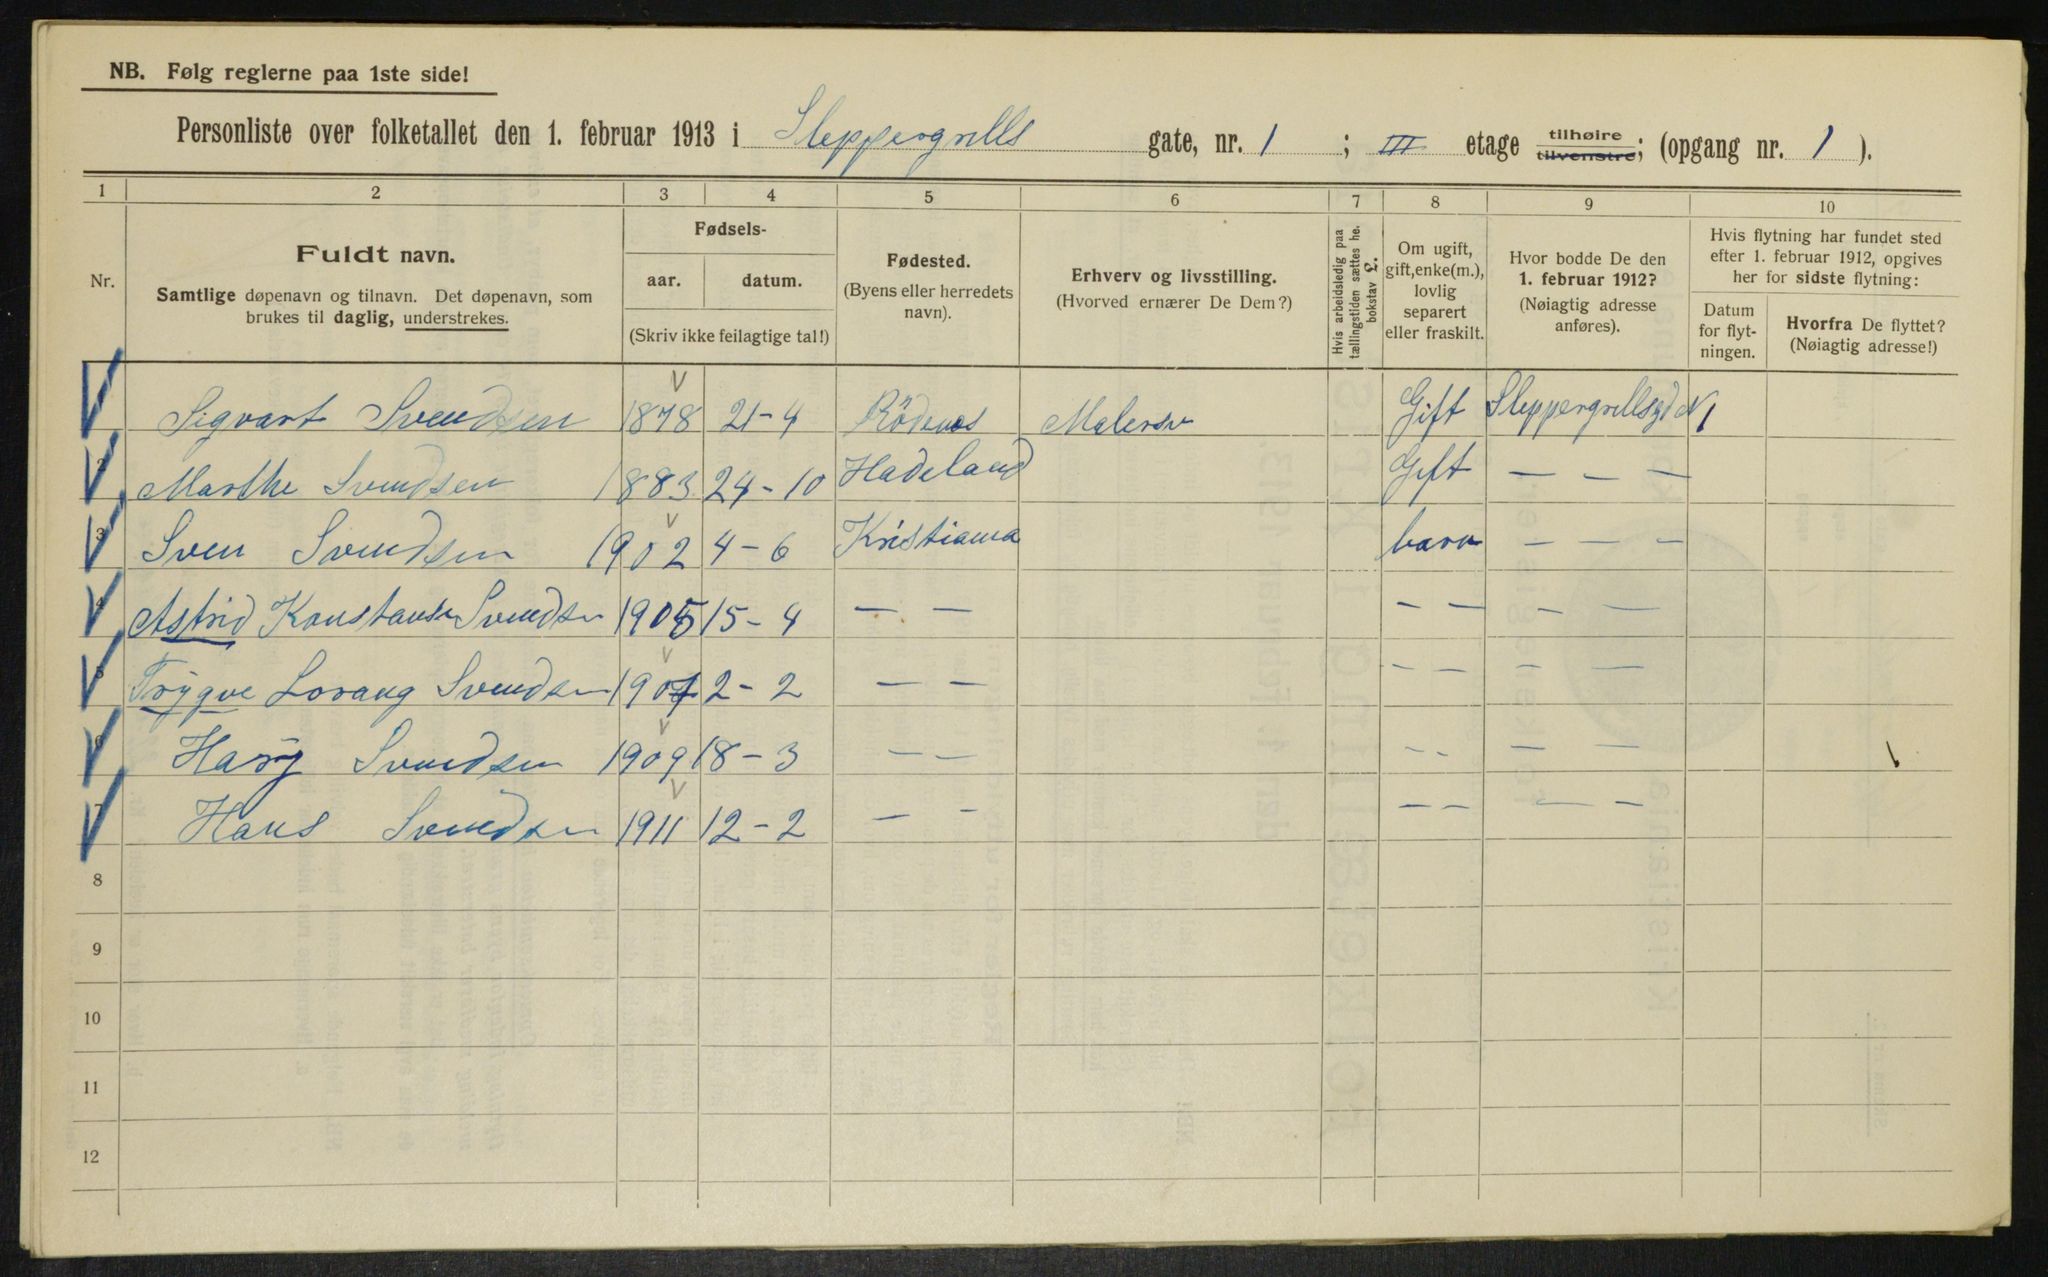 NB. Følg reglerne paa 1ste side!
Personliste over folketallet den 1. februar 1913 i Sleppegrells gate, nr. 1 ; III etage tilhøire tilvenstre; (opgang nr. 1 ).
1 2 3 4 5 6 7 8 9 10
Nr.
Fuldt navn.
Samtlige døpenavn og tilnavn. Det døpenavn, som
brukes til daglig, understrekes.
Fødsels-
aar. datum.
(Skriv ikke feilagtige tal!)
Fødested.
(Byens eller herredets
navn).
Erhverv og livsstilling.
(Hvorved ernærer De Dem?)
Hvis arbeidsledig paa
tællingstiden sættes he.
bokstav L.
Om ugift,
gift, enke(m.),
lovlig
separert
eller fraskilt.
Hvor bodde De den
1. februar 1912?
(Nøiagtig adresse
anføres).
Hvis flytning har fundet sted
efter 1. februar 1912, opgives
her for sidste flytning:
Datum
for flyt-
ningen.
Hvorfra De flyttet?
(Nøiagtig adresse!)
Sigvart Svendsen 1878 21-4 Rödenes Malersv Gift Sleppergrellsgd N 1
2 Marthe Svendsen 1883 24-10 Hadeland Gift — — —
3 Sven Svendsen 1902 4-6 Kristiania barn — — —
4 Astrid Konstanse Svendsen 1905 15-4 — — — — — —
5 Trygve Lorang Svendsen 1907 2-2 — — — — — —
6 Hary Svendsen 1909 18-3 — — - - — —
7 Hans Svendsen 1911 12-2 — — — — — —
8
9
10
11
12